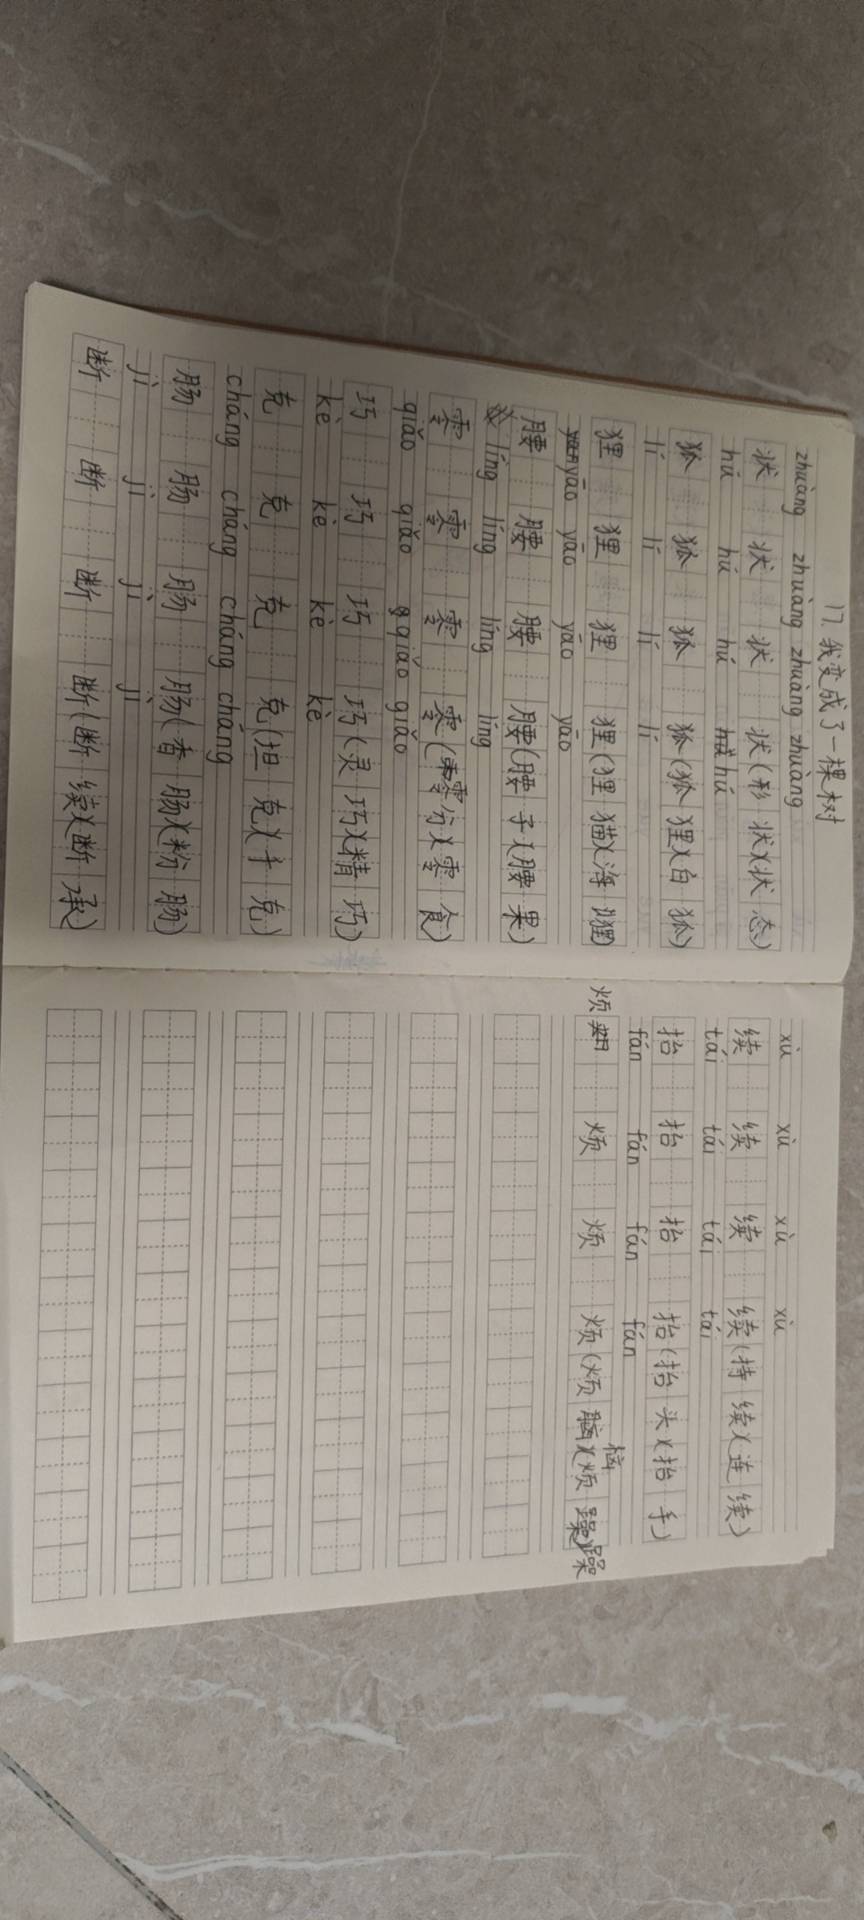 17.我变成了一棵树
zhuàng zhuàng zhuàng zhuàng
状 状 状 状(形状)(状态)
hú hú hú hú
狐 狐 狐 狐(狐狸)(白狐)
lí lí lí lí
狸 狸 狸 狸(狸猫)(海狸)
yāo yāo yāo yāo
腰 腰 腰 腰(腰子)(腰果)
líng líng líng líng
零 零 零 零(零分)(零食)
qiǎo qiǎo qiǎo qiǎo
巧 巧 巧 巧(灵巧)(精巧)
kè kè kè kè
克 克 克 克(坦克)(千克)
cháng cháng cháng cháng
肠 肠 肠 肠(香肠)(粉肠)
jì jì jì jì
断 断 断 断(断续)(断承)
xù xù xù xù
续 续 续 续(持续)(连续)
tái tái tái tái
抬 抬 抬 抬(抬头)(抬手)
fán fán fán fán
烦 烦 烦 烦(烦恼)(烦躁)